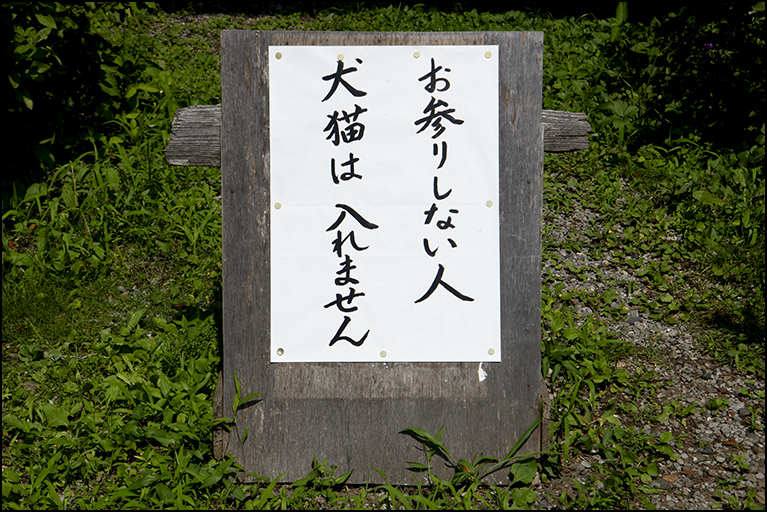 お参りしない人
犬猫は 入れません